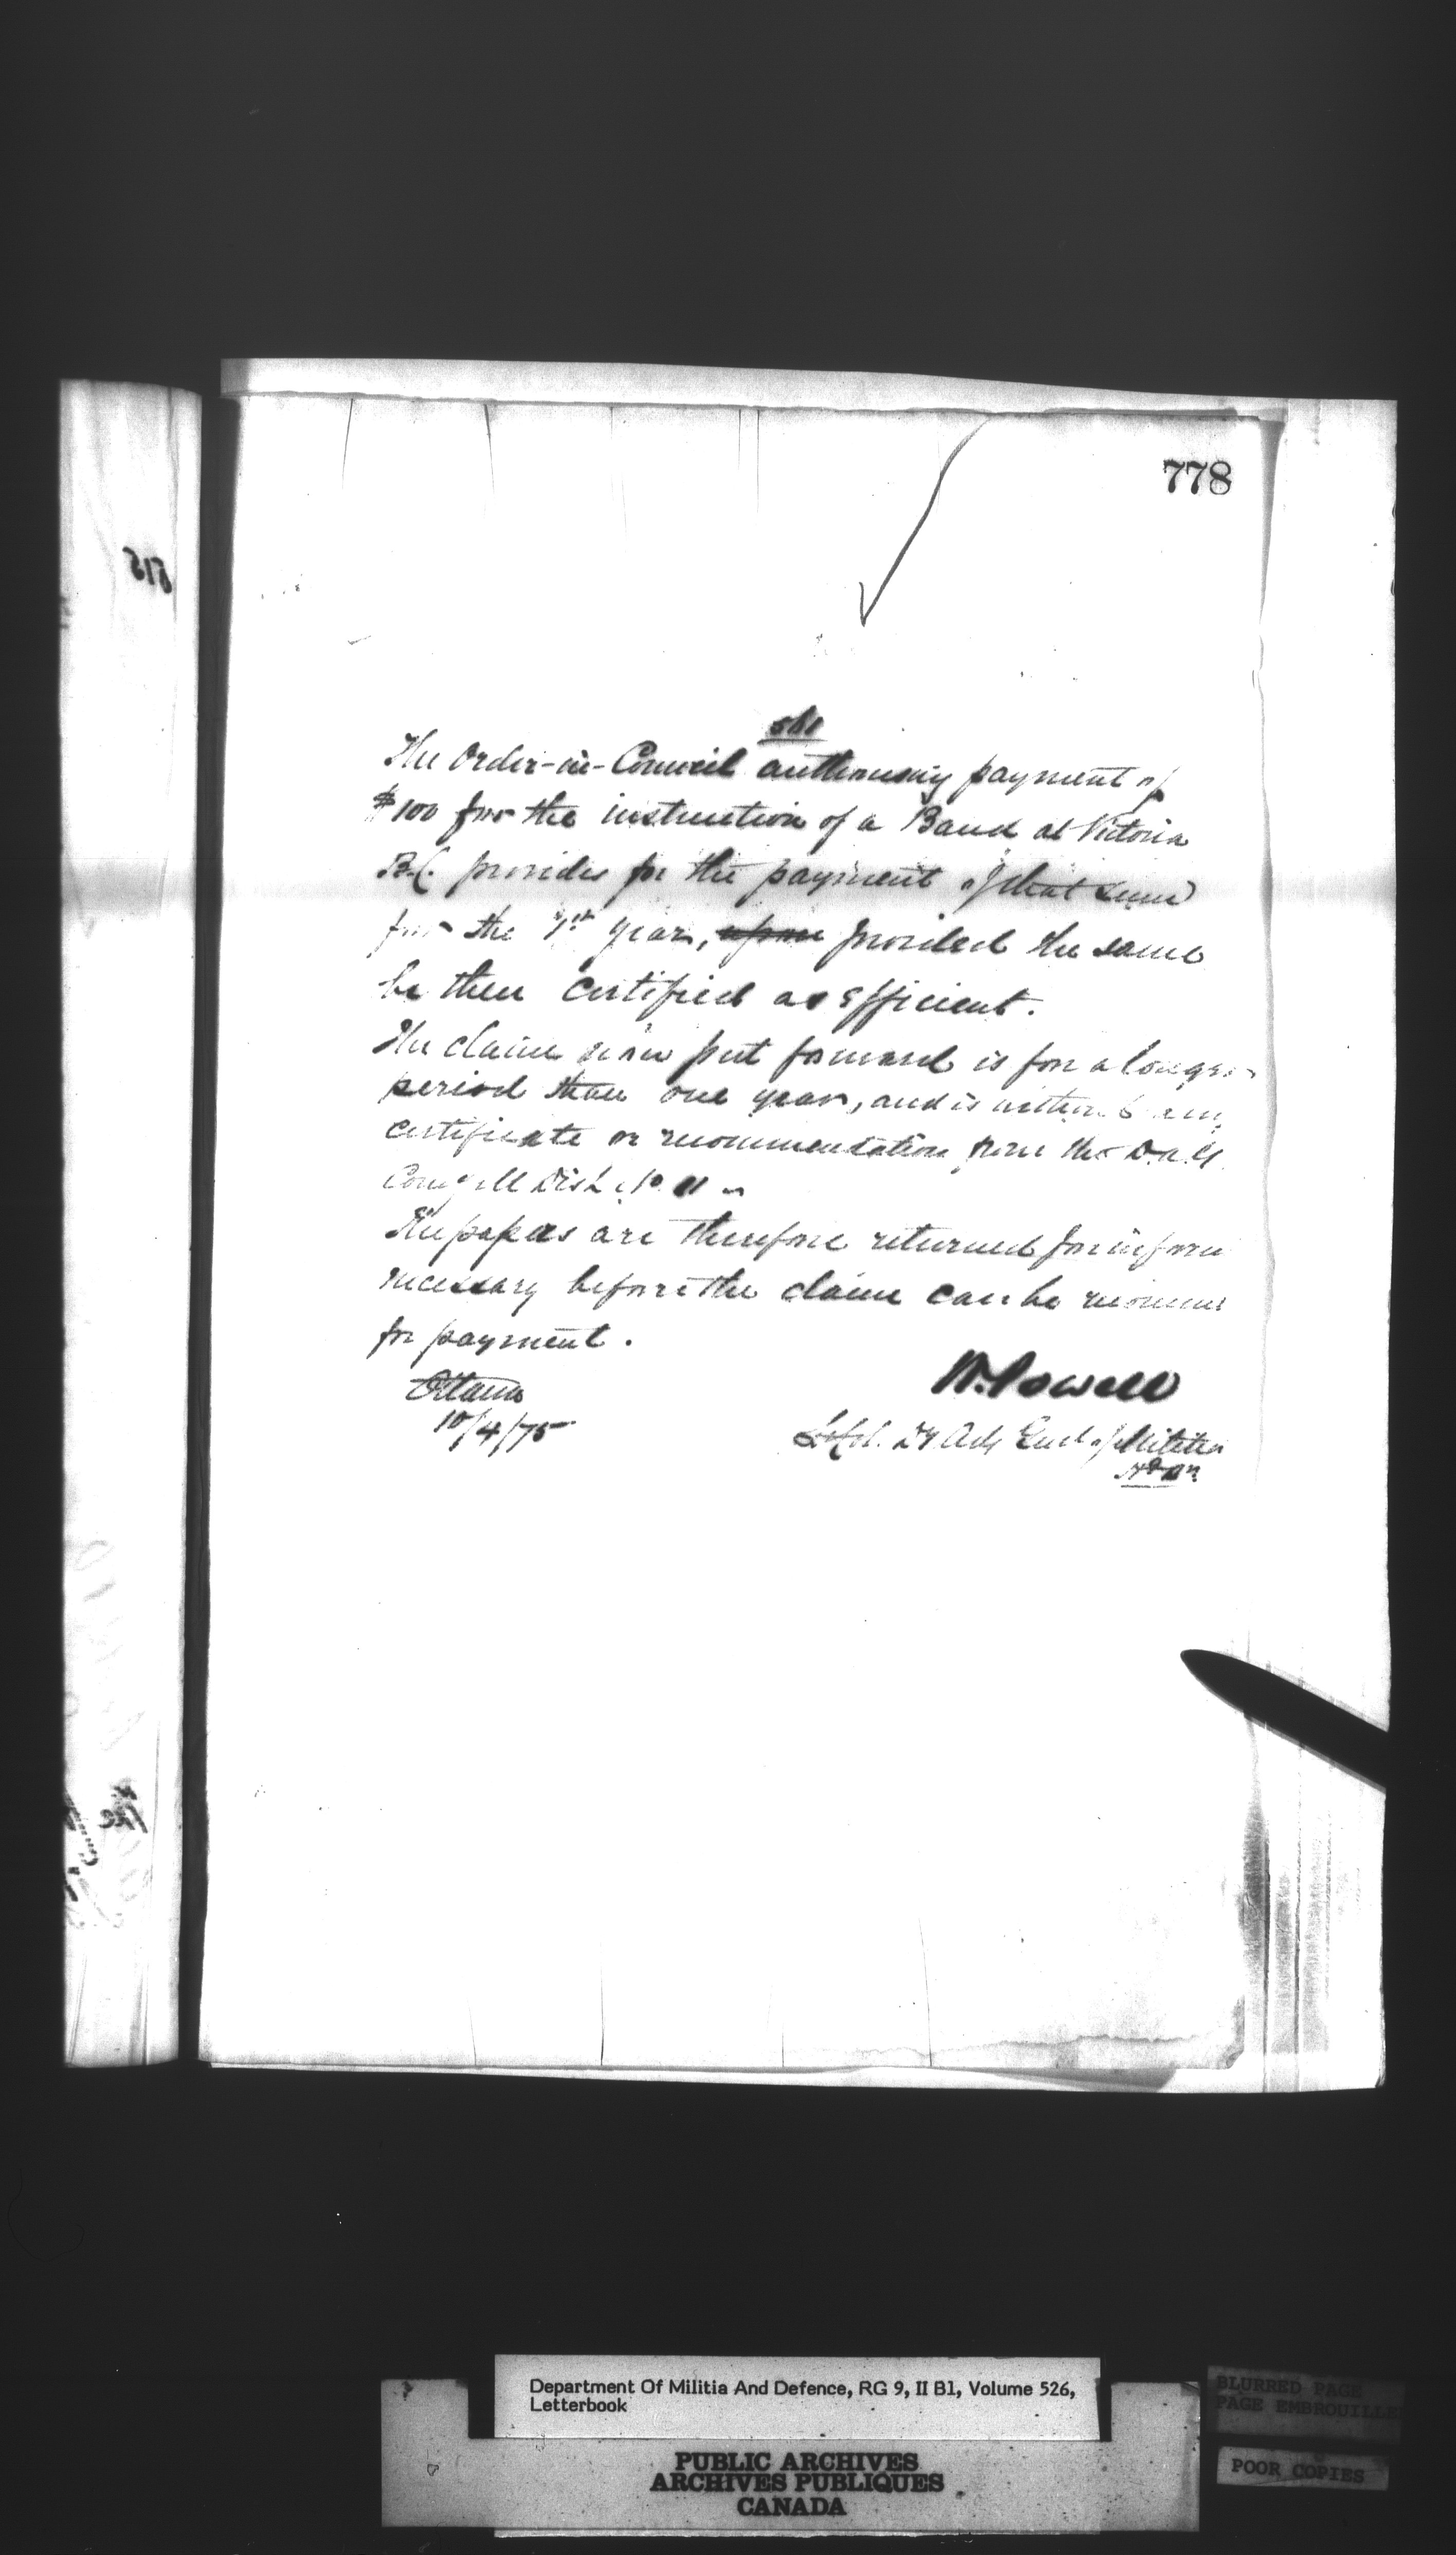 778
The Order-in-Council authorising payment of
$100 for the instruction of a Band at Victoria
B.C. provides for the payment of that sum
for the 1st year, upon provided the same
be then certified as efficient.
The claim now put forward is for a longer
period than one year, and is without any
certificate or recommendation from the D.A.G.
Comg Mil Dist No. 11
The papers are therefore returned for inform
necessary before the claim can be recomm
for payment.
Ottawa
10/4/75
W. Powell
Lt Col. Dy Adj Genl of Militia
Hd Qrs
Department Of Militia And Defence, RG 9, II B1, Volume 526,
Letterbook
PUBLIC ARCHIVES
ARCHIVES PUBLIQUES
CANADA
BLURRED PAGE
PAGE EMBROUILLE
POOR COPIES